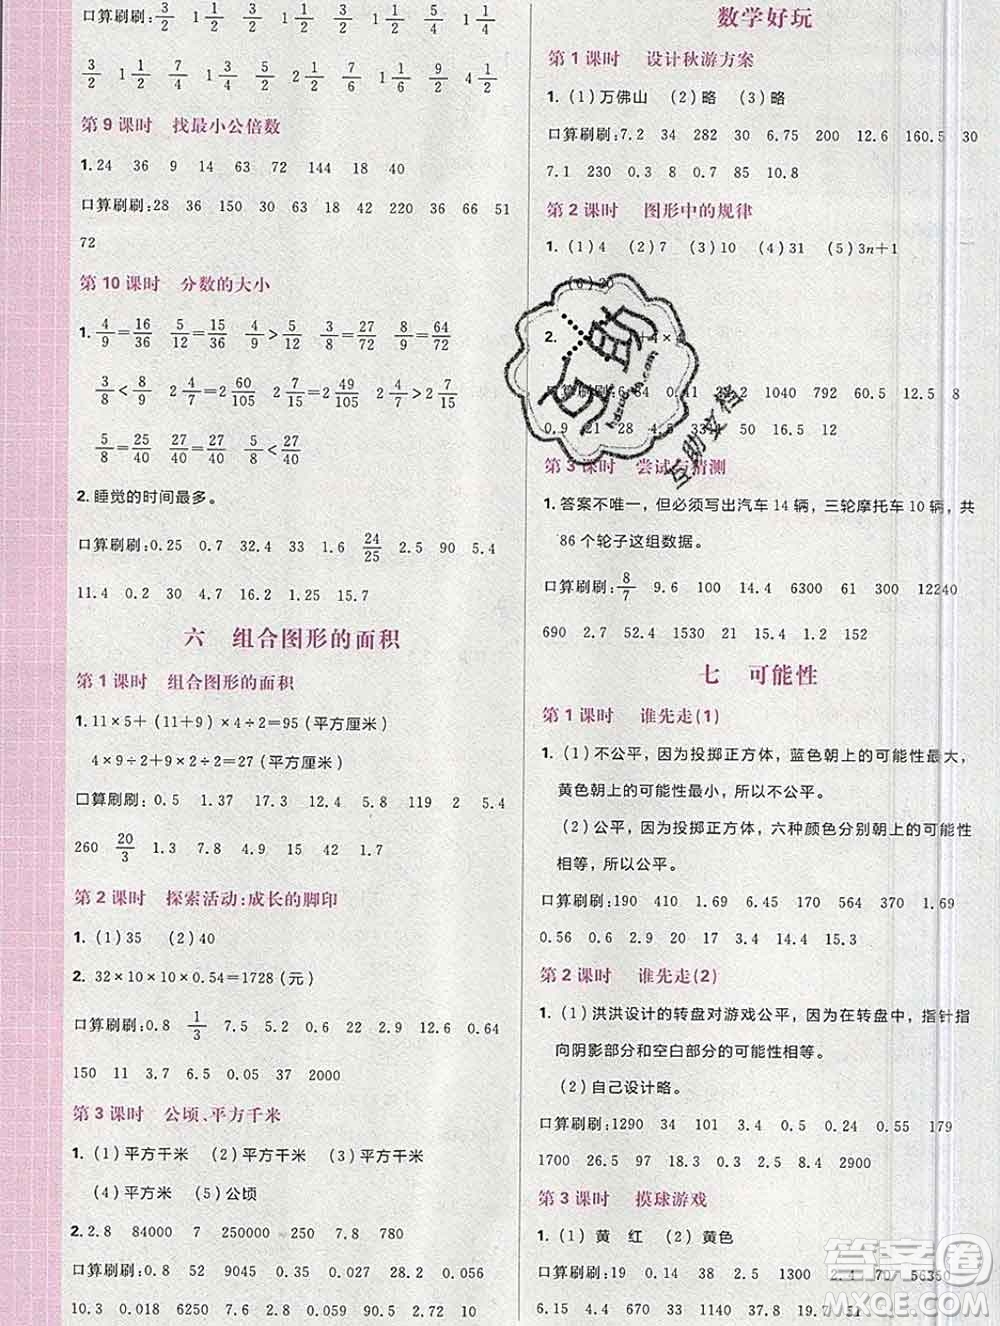 口算刷刷: 3/2 1 1/2 3/2 1 1/2 3/2 1 1/2 3/2 1 1/4
3/2 1 1/2 3/2 1 1/2 3/2 9/2 4 1/2
第 9 课时 找最小公倍数
1. 24 36 9 14 63 72 144 18 40
口算刷刷: 28 36 150 30 63 16 42 220 36 66 51
72
第 10 课时 分数的大小
1. 4/9=16/36 5/12=15/36 4/9>5/12 3/8=27/72 8/9=64/72
3/8<8/9 2 4/7=2 60/105 2 7/15=2 49/105 2 4/7>2 7/15
5/8=25/40 27/40=27/40 5/8<27/40
2. 睡觉的时间最多。
口算刷刷: 0.25 0.7 32.4 33 1.6 24/25 2.5 90 5.4
11.4 0.2 30 4.7 16.2 1.25 15.7
六 组合图形的面积
第 1 课时 组合图形的面积
1. 11×5+(11+9)×4÷2=95(平方厘米)
4×9÷2+9×2÷2=27(平方厘米)
口算刷刷: 0.5 1.37 17.3 5.2 119 2 5.4
260 20/3 1.3 7.8 4.9 15 42 1.7
第 2 课时 探索活动:成长的脚印
1. (1)35 (2)40
2. 32×10×10×0.54=1728(元)
口算刷刷: 0.8 1/3 7.5 5.2 2.9 12.6 0.64
150 11 3.7 6.5 0.05 37 2000
第 3 课时 公顷、平方千米
1. (1)平方千米 (2)平方千米 (3)平方千米
(4)平方米 (5)公顷
2. 2.8 84000 7 250000 250 7.8 780
口算刷刷: 0.8 52 9045 0.35 1.26 28.2 0.056
10.3 0.018 6250 7.6 9.5 0.42 10
数学好玩
第 1 课时 设计秋游方案
1. (1)万佛山 (2)略 (3)略
口算刷刷: 7.2 34 282 30 6.75 200 12.6 160.5 30
7.1 230 0.3 8 0.7 85 10.8
第 2 课时 图形中的规律
1. (1)4 (2)7 (3)10 (4)31 (5)3n+1
(6)20
2.
口算刷刷: 6.84 0.41 1040 792 60.5 12.8
0.9 21 28 4.5 50 16.5 12
第 3 课时 尝试与猜测
1. 答案不唯一，但必须写出汽车 14 辆，三轮摩托车 10 辆，共
86 个轮子这组数据。
口算刷刷: 8/7 9.6 100 14.4 6300 61 300 12240
690 2.7 52.4 1530 10.2 1.2 152
七 可能性
第 1 课时 谁先走(1)
1. (1)不公平，因为投掷正方体，蓝色朝上的可能性最大，
黄色朝上的可能性最小，所以不公平。
(2)公平，因为投掷正方体，六种颜色分别朝上的可能性
相等，所以公平。
口算刷刷: 190 410 1.69 6.45 170 564 370 1.69
0.56 13 0.6 2.4 15.5 15.3 42
第 2 课时 谁先走(2)
1. (1)洪洪设计的转盘对游戏公平，因为在转盘中，指针指
向阴影部分和空白部分的可能性相等。
(2)自己设计略。
口算刷刷: 1290 34 101 3.4 0.5 0.24 55 179
1700 26.5 97 18.3 0.3 8.4 2900
第 3 课时 摸球游戏
1. (1)黄 红 (2)黄色
口算刷刷: 19 0.14 38 2.5 1300 2.4 70 56350
6.15 4.4 33 1140 37.8 19.7 51
互助
hdzuoye.com
互助文档
答案圈
MXQE.COM